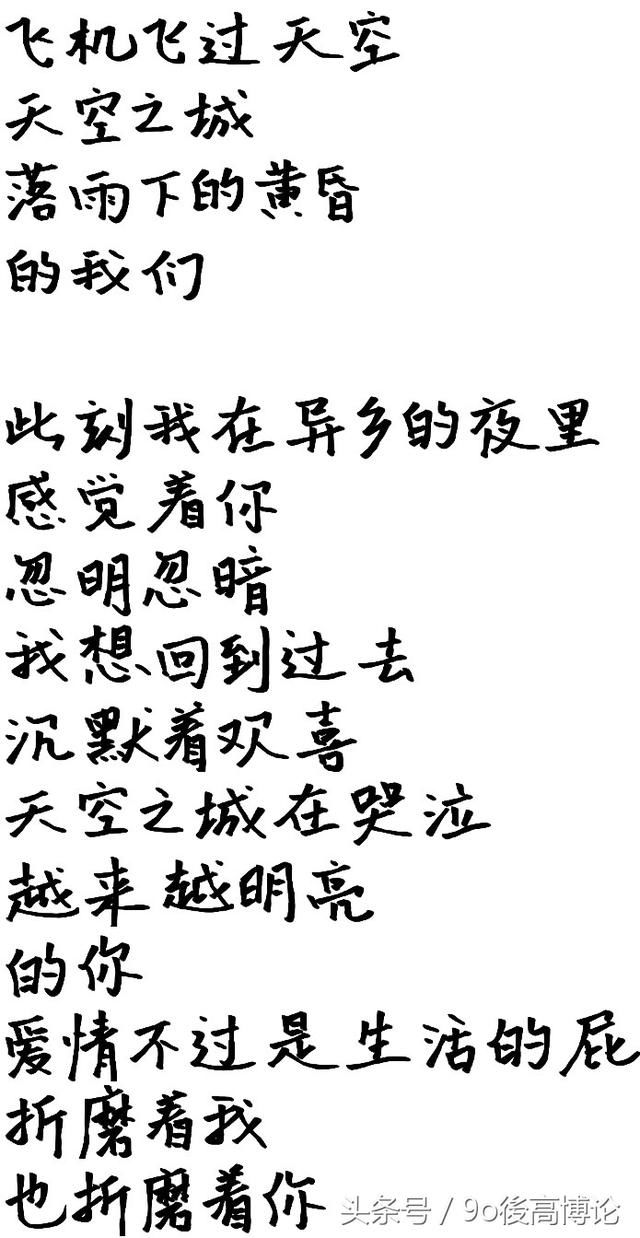 飞机飞过天空
天空之城
落雨下的黄昏
的我们
此刻我在异乡的夜里
感觉着你
忽明忽暗
我想回到过去
沉默着欢喜
天空之城在哭泣
越来越明亮
的你
爱情不过是生活的屁
折磨着我
也折磨着你
头条号 / 9o後高博论